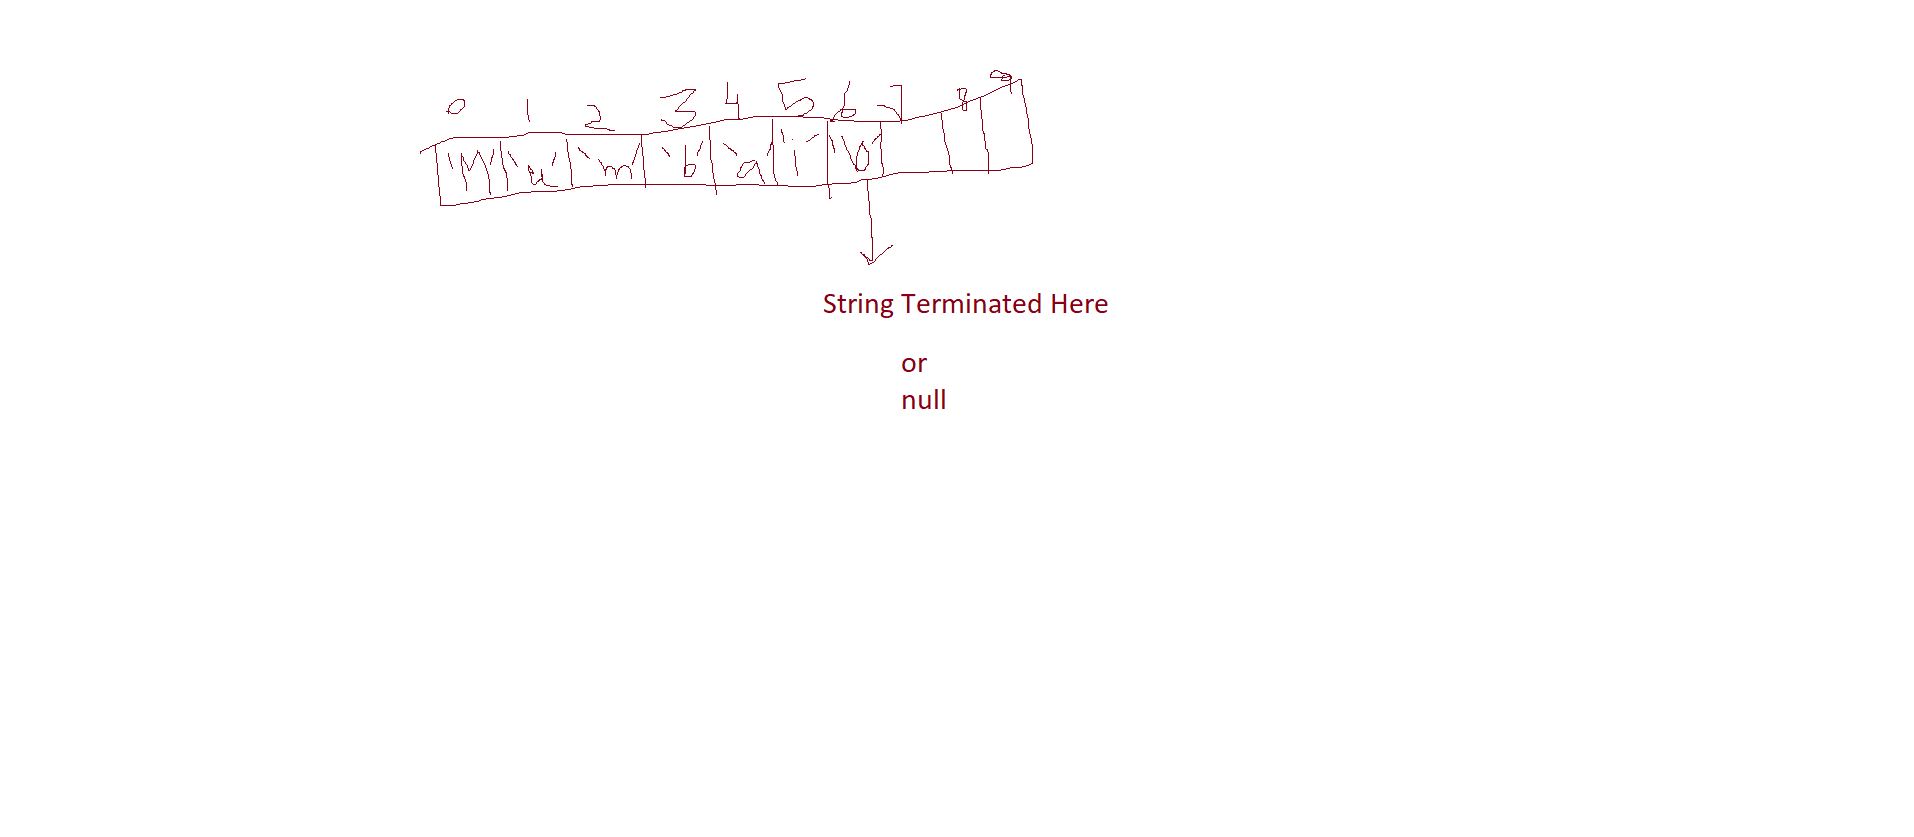 0 1 2 3 4 5 6 7 8 9
'M' 'u' 'm' 'b' 'a' 'i' '\0'
String Terminated Here
or
null